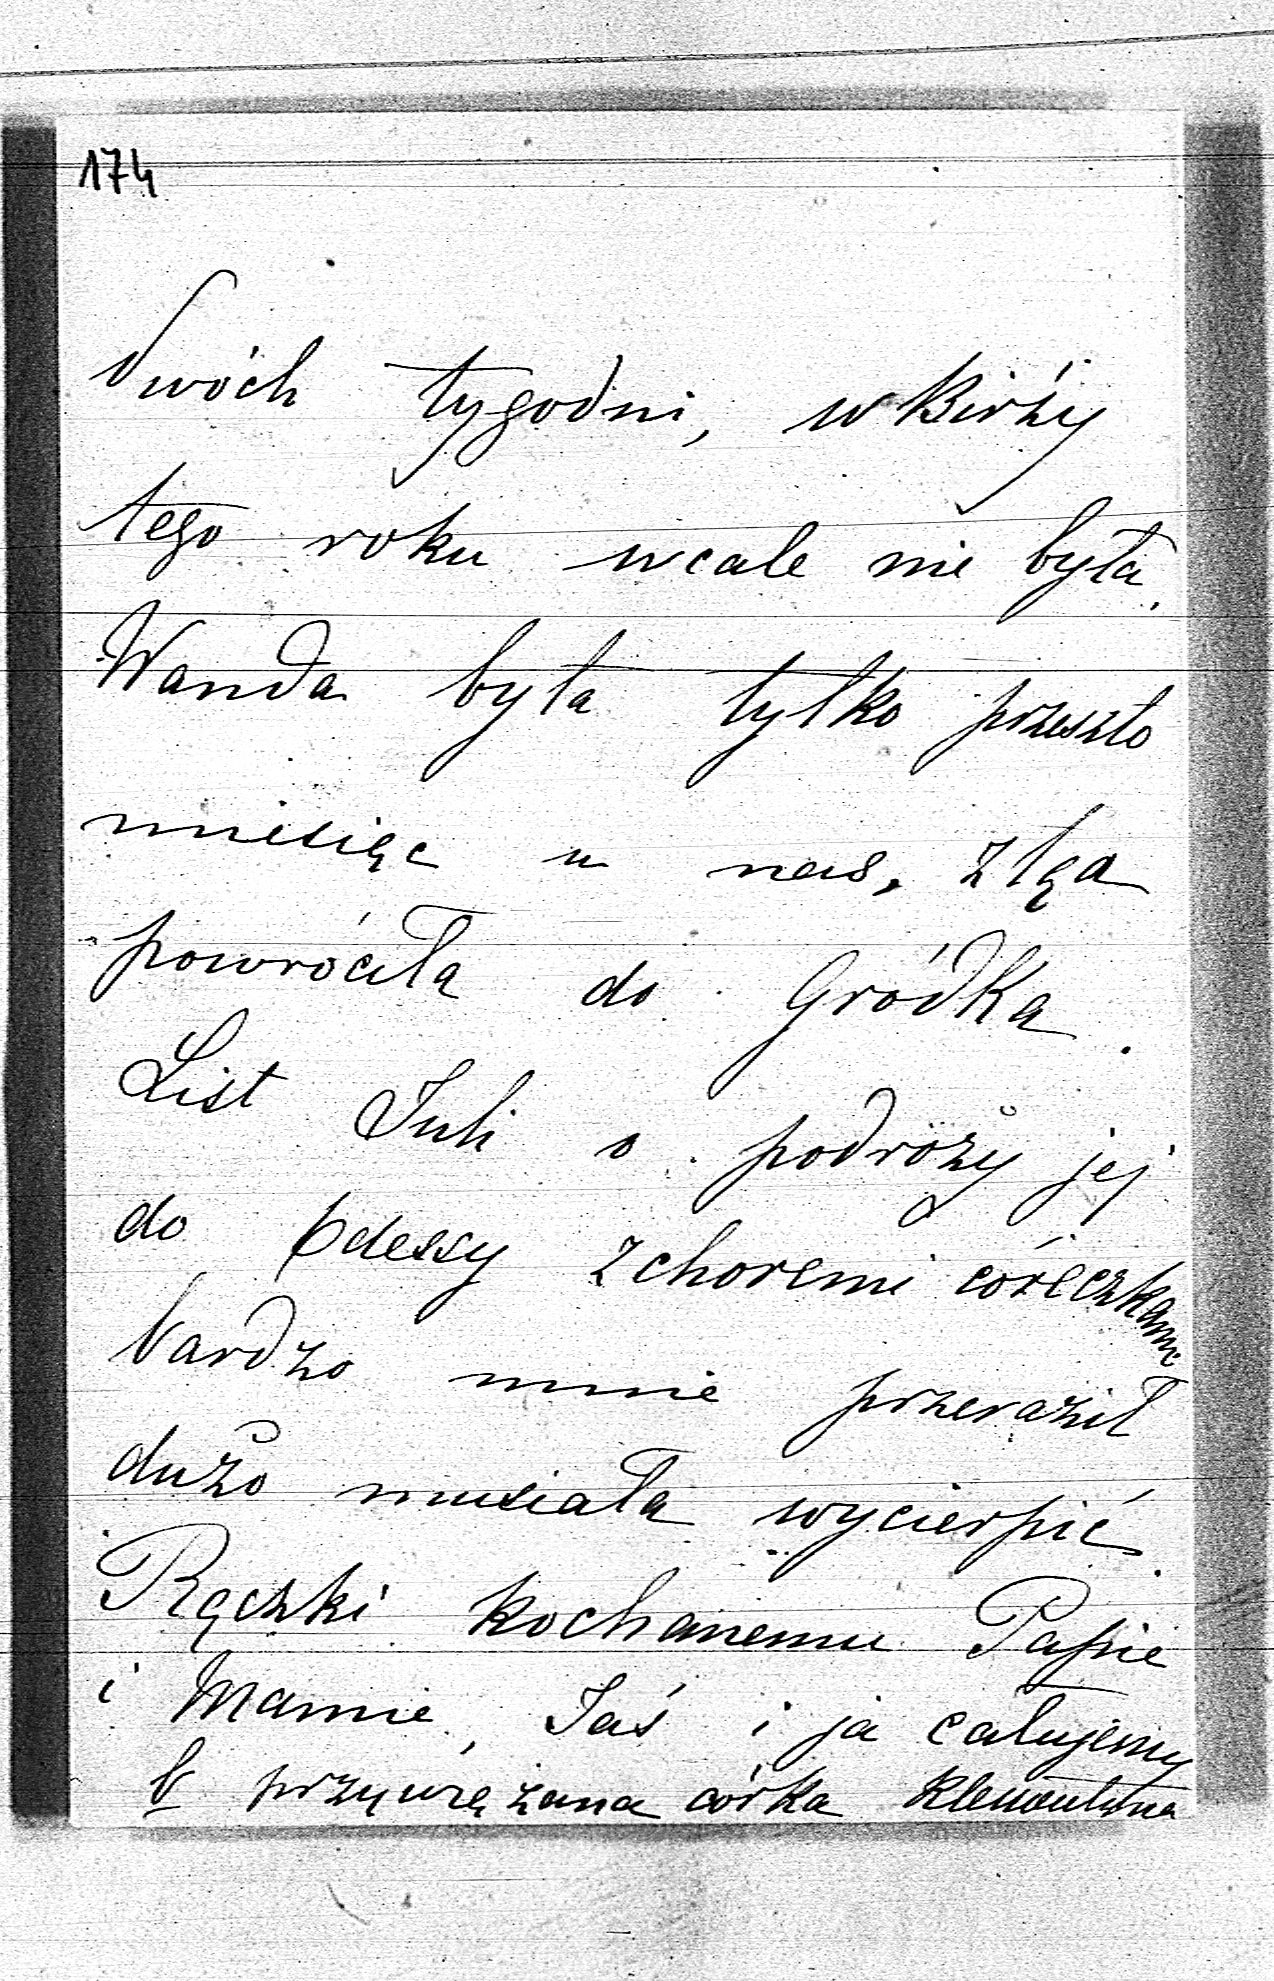 174
dwóch tygodni, w Birży
tego roku wcale nie była.
Wanda była tylko przeszło
miesiąc u nas, ztąd
powróciła do Gródka.
List Juli o podróży jej
do Odessy z choremi córeczkami
bardzo mnie przeraził
dużo musiała wycierpić.
Rączki kochanemu Papie
i Mamie, Jaś i ja całujemy
b przywiązana córka Klementyna